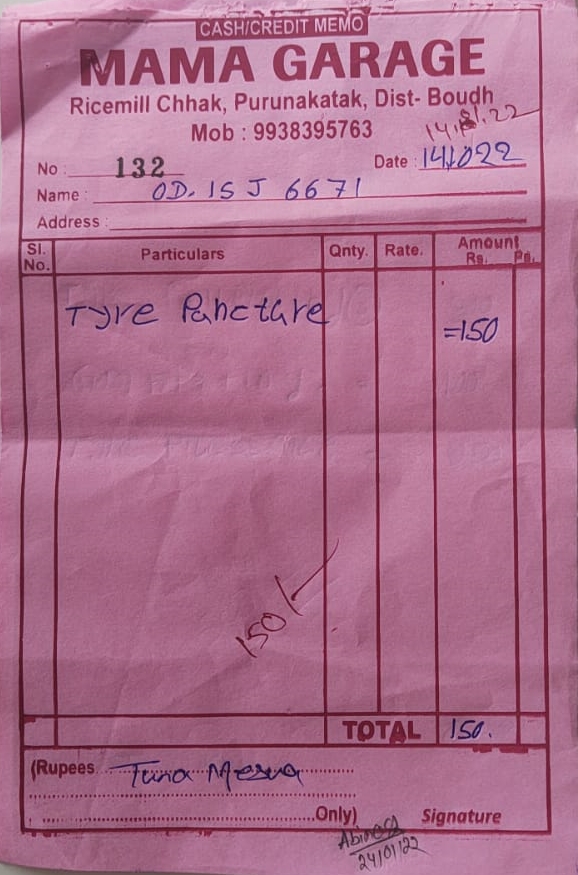 CASH/CREDIT MEMO
MAMA GARAGE
Ricemill Chhak, Purunakatak, Dist- Boudh
Mob : 9938395763
No : 132
Date :
Name : OD. 15 J 6671
Address :
Sl. No. Particulars Qnty. Rate. Amount Rs. Ps.
Tyre Puncture =150
150/-
TOTAL 150.
(Rupees Tuna
Only) Signature
24/01/22